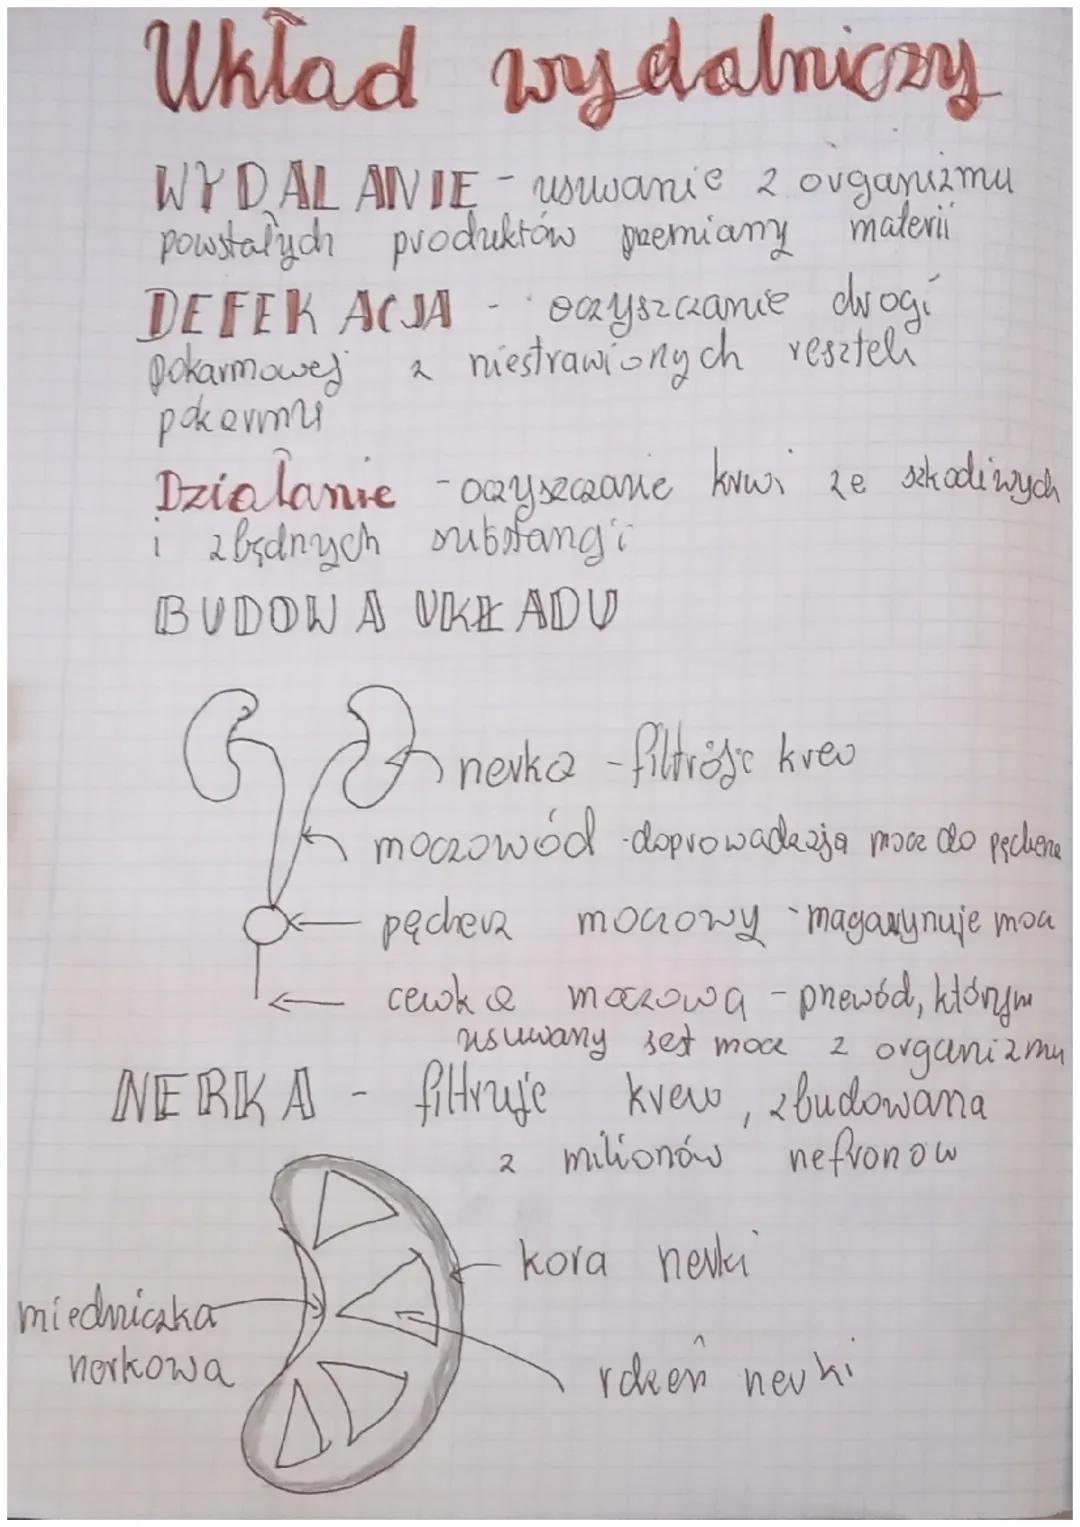 Układ wydalniczy
WYDALANIE - usuwanie z organizmu
powstałych produktów przemiany materii
DEFEKACJA - oczyszczanie drogi
pokarmowej z niestrawionych resztek
pokarmu
Działanie - oczyszczanie krwi ze szkodliwych
i zbędnych substancji
BUDOWA UKŁADU
nerka - filtróje krew
moczowód - doprowadzają mocz do pęcherza
pęcherz moczowy - magazynuje mocz
cewka moczowa - przewód, którym
usuwany jest mocz z organizmu
NERKA - filtruje krew, zbudowana
z milionów nefronow
kora nerki
miedniczka
nerkowa
rdzeń nerki